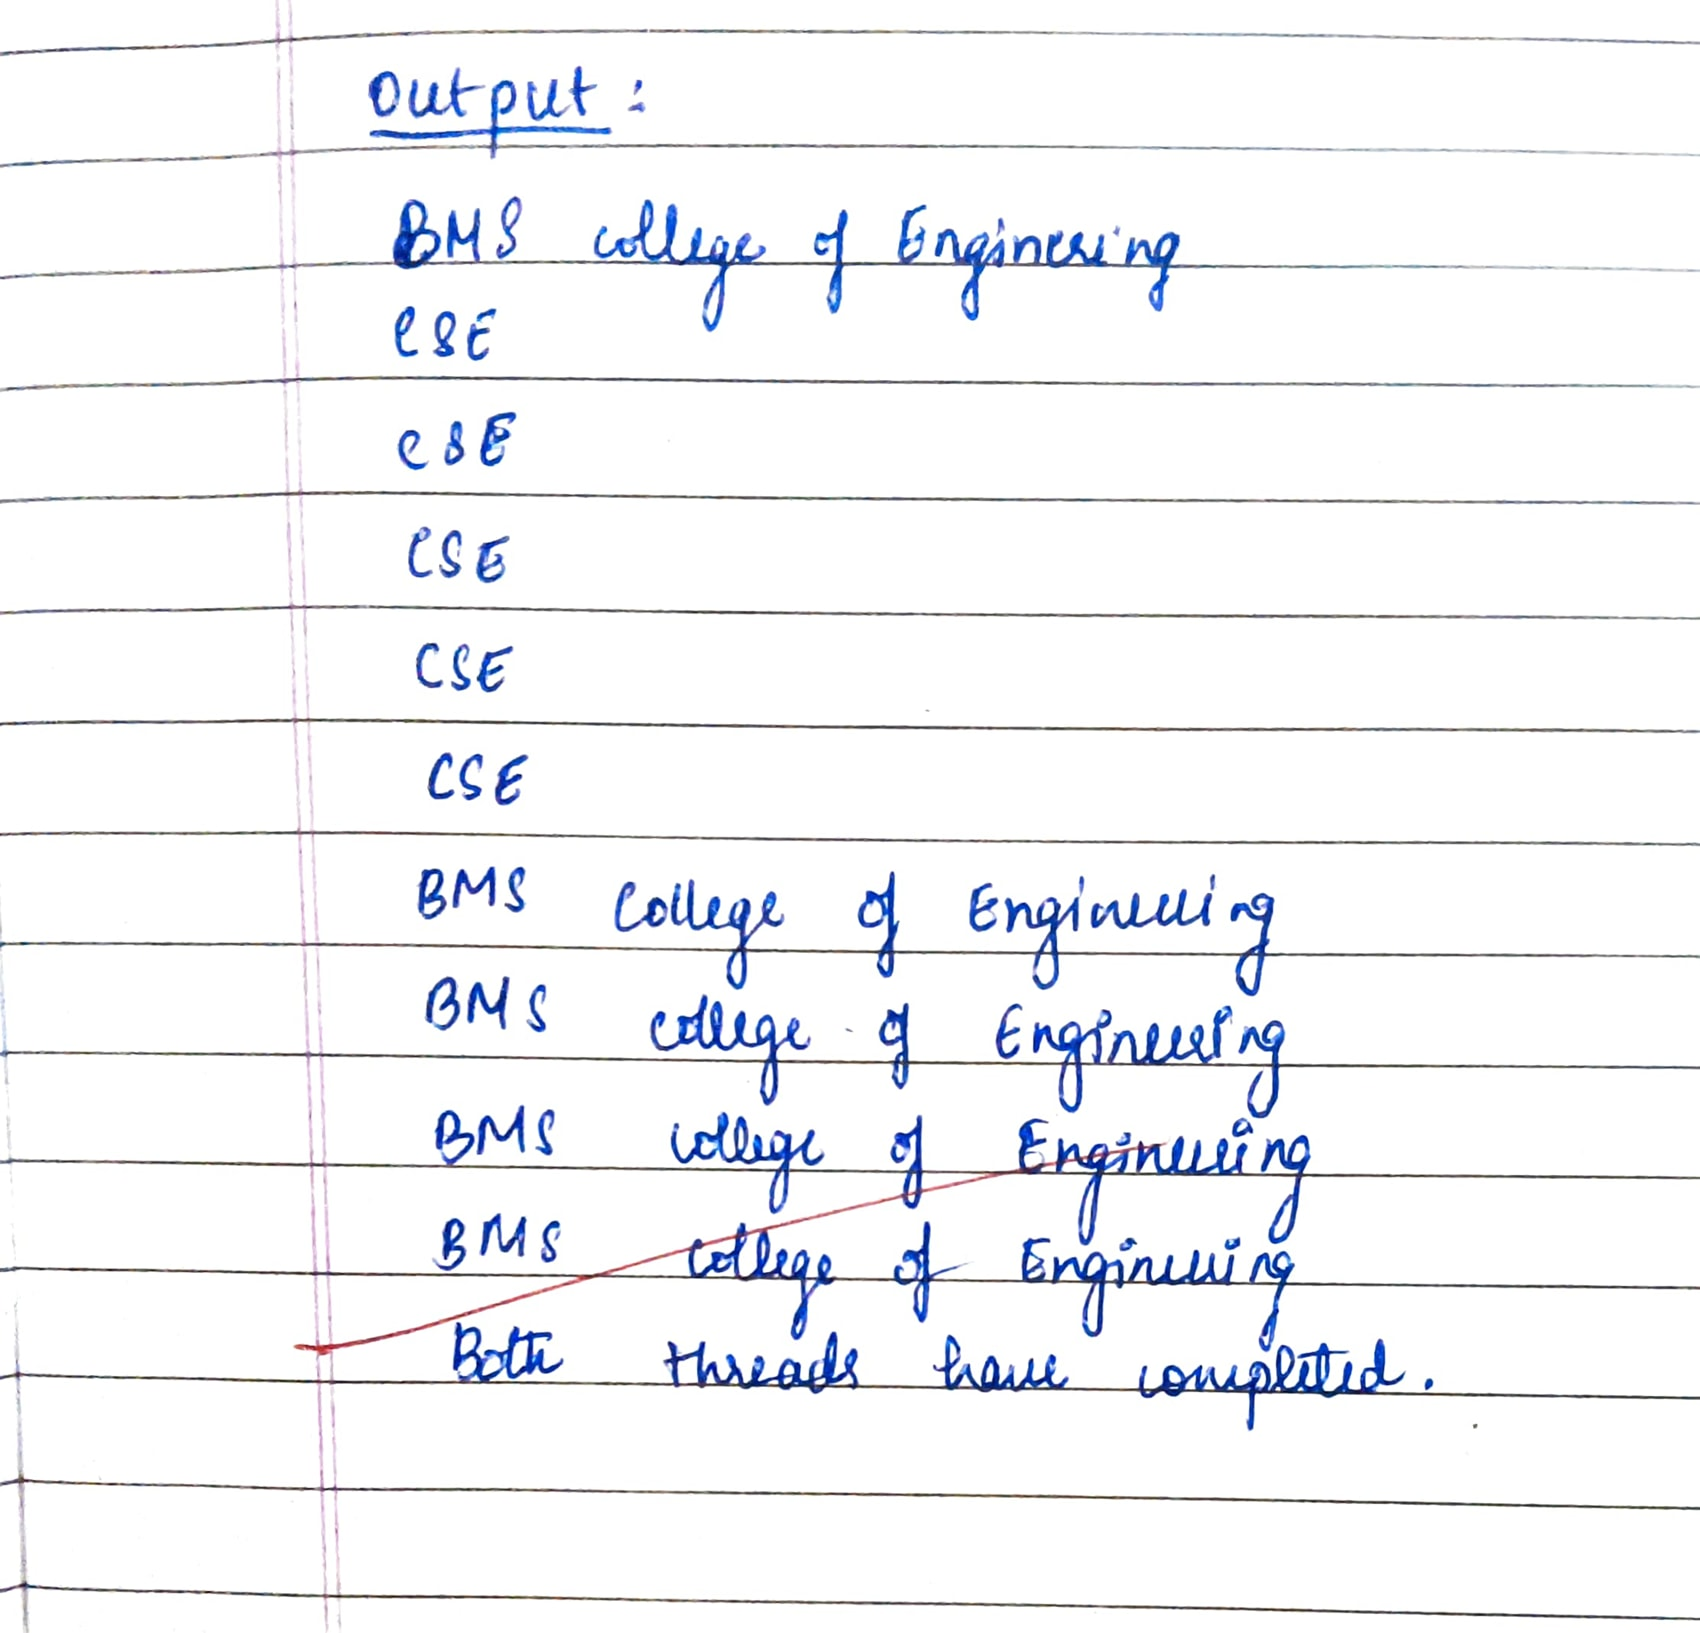 Output :
BMS college of Engineering
CSE
CSE
CSE
CSE
CSE
BMS College of Engineering
BMS college of Engineering
BMS college of Engineering
BMS college of Engineering
Both threads have completed.